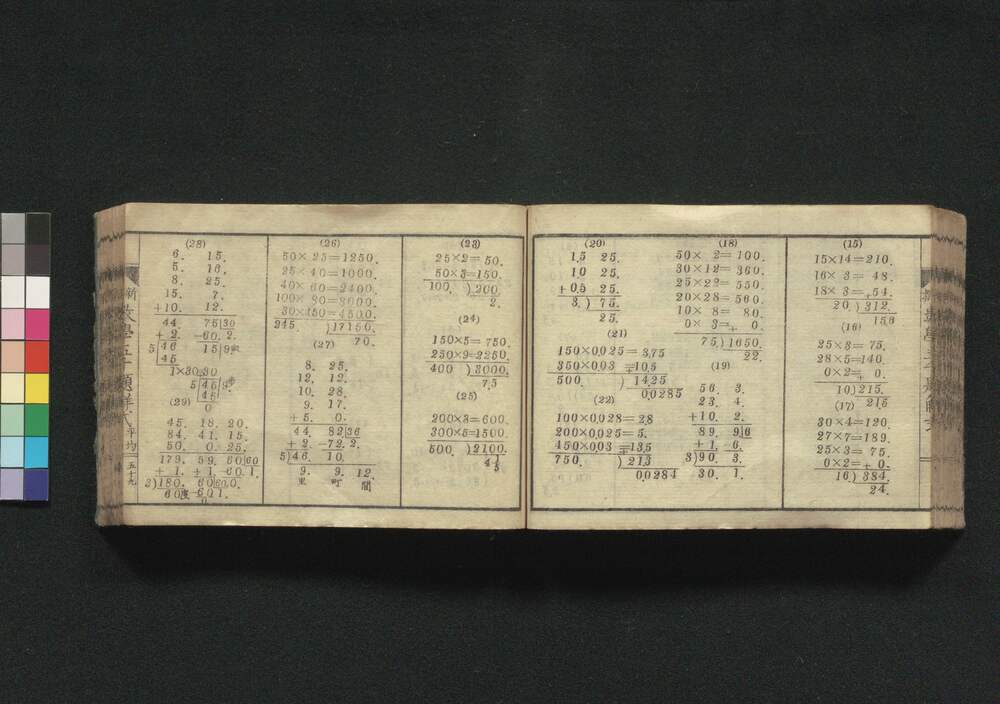 (15)
15×14=210.
16× 3= 48.
18× 3=+54.
20 )312.
15,6
(16)
25×3= 75.
28×5=140.
0×2=+ 0.
10)215.
21,5
(17)
30×4=120.
27×7=189.
25×3= 75.
0×2=+ 0.
16)384.
24.
(18)
50× 2=100.
30×12=360.
25×22=550.
20×28=560.
10× 8= 80.
0× 3=+ 0.
75.)1650.
22.
(19)
56. 3.
23. 4.
+10. 2.
89. 9|6
+1. -6.
3)90. 3.
30. 1.
(20)
1,5 25.
10 25.
+0,5 25.
3.)75.
25.
(21)
150×0,025=3,75
350×0,03=+10,5
500. )14,25
0,0285
(22)
100×0,028=2,8
200×0,025=5.
450×0,03=+13,5
750. )21,3
0,0284
(23)
25×2= 50.
50×3=150.
100. )200.
2.
(24)
150×5= 750.
250×9=2250.
400 )3000.
7,5
(25)
200×3= 600.
300×5=1500.
500. )2100.
4 1/5
(26)
50× 25=1250.
25× 40=1000.
40× 60=2400.
100× 80=8000.
30×150=4500.
245. )17150.
70.
(27)
8. 25.
12. 12.
10. 28.
9. 17.
+5. 0.
44. 82|36
+2. -72. 2.
5)46. 10.
9. 9. 12.
里 町 間
(28)
6. 15.
5. 16.
8. 25.
15. 7.
+10. 12.
44. 75|30
+ 2. -60. 2.
5|46 15|9
45
1×30=30
5|45|9.
45
0
(29)
45. 18. 20.
84. 41. 15.
50. 0. 25.
179. 59. 60|60
+ 1. + 1. -60. 1.
3)180. 60|60. 0.
60度 -60 1.
0
平均
五十九